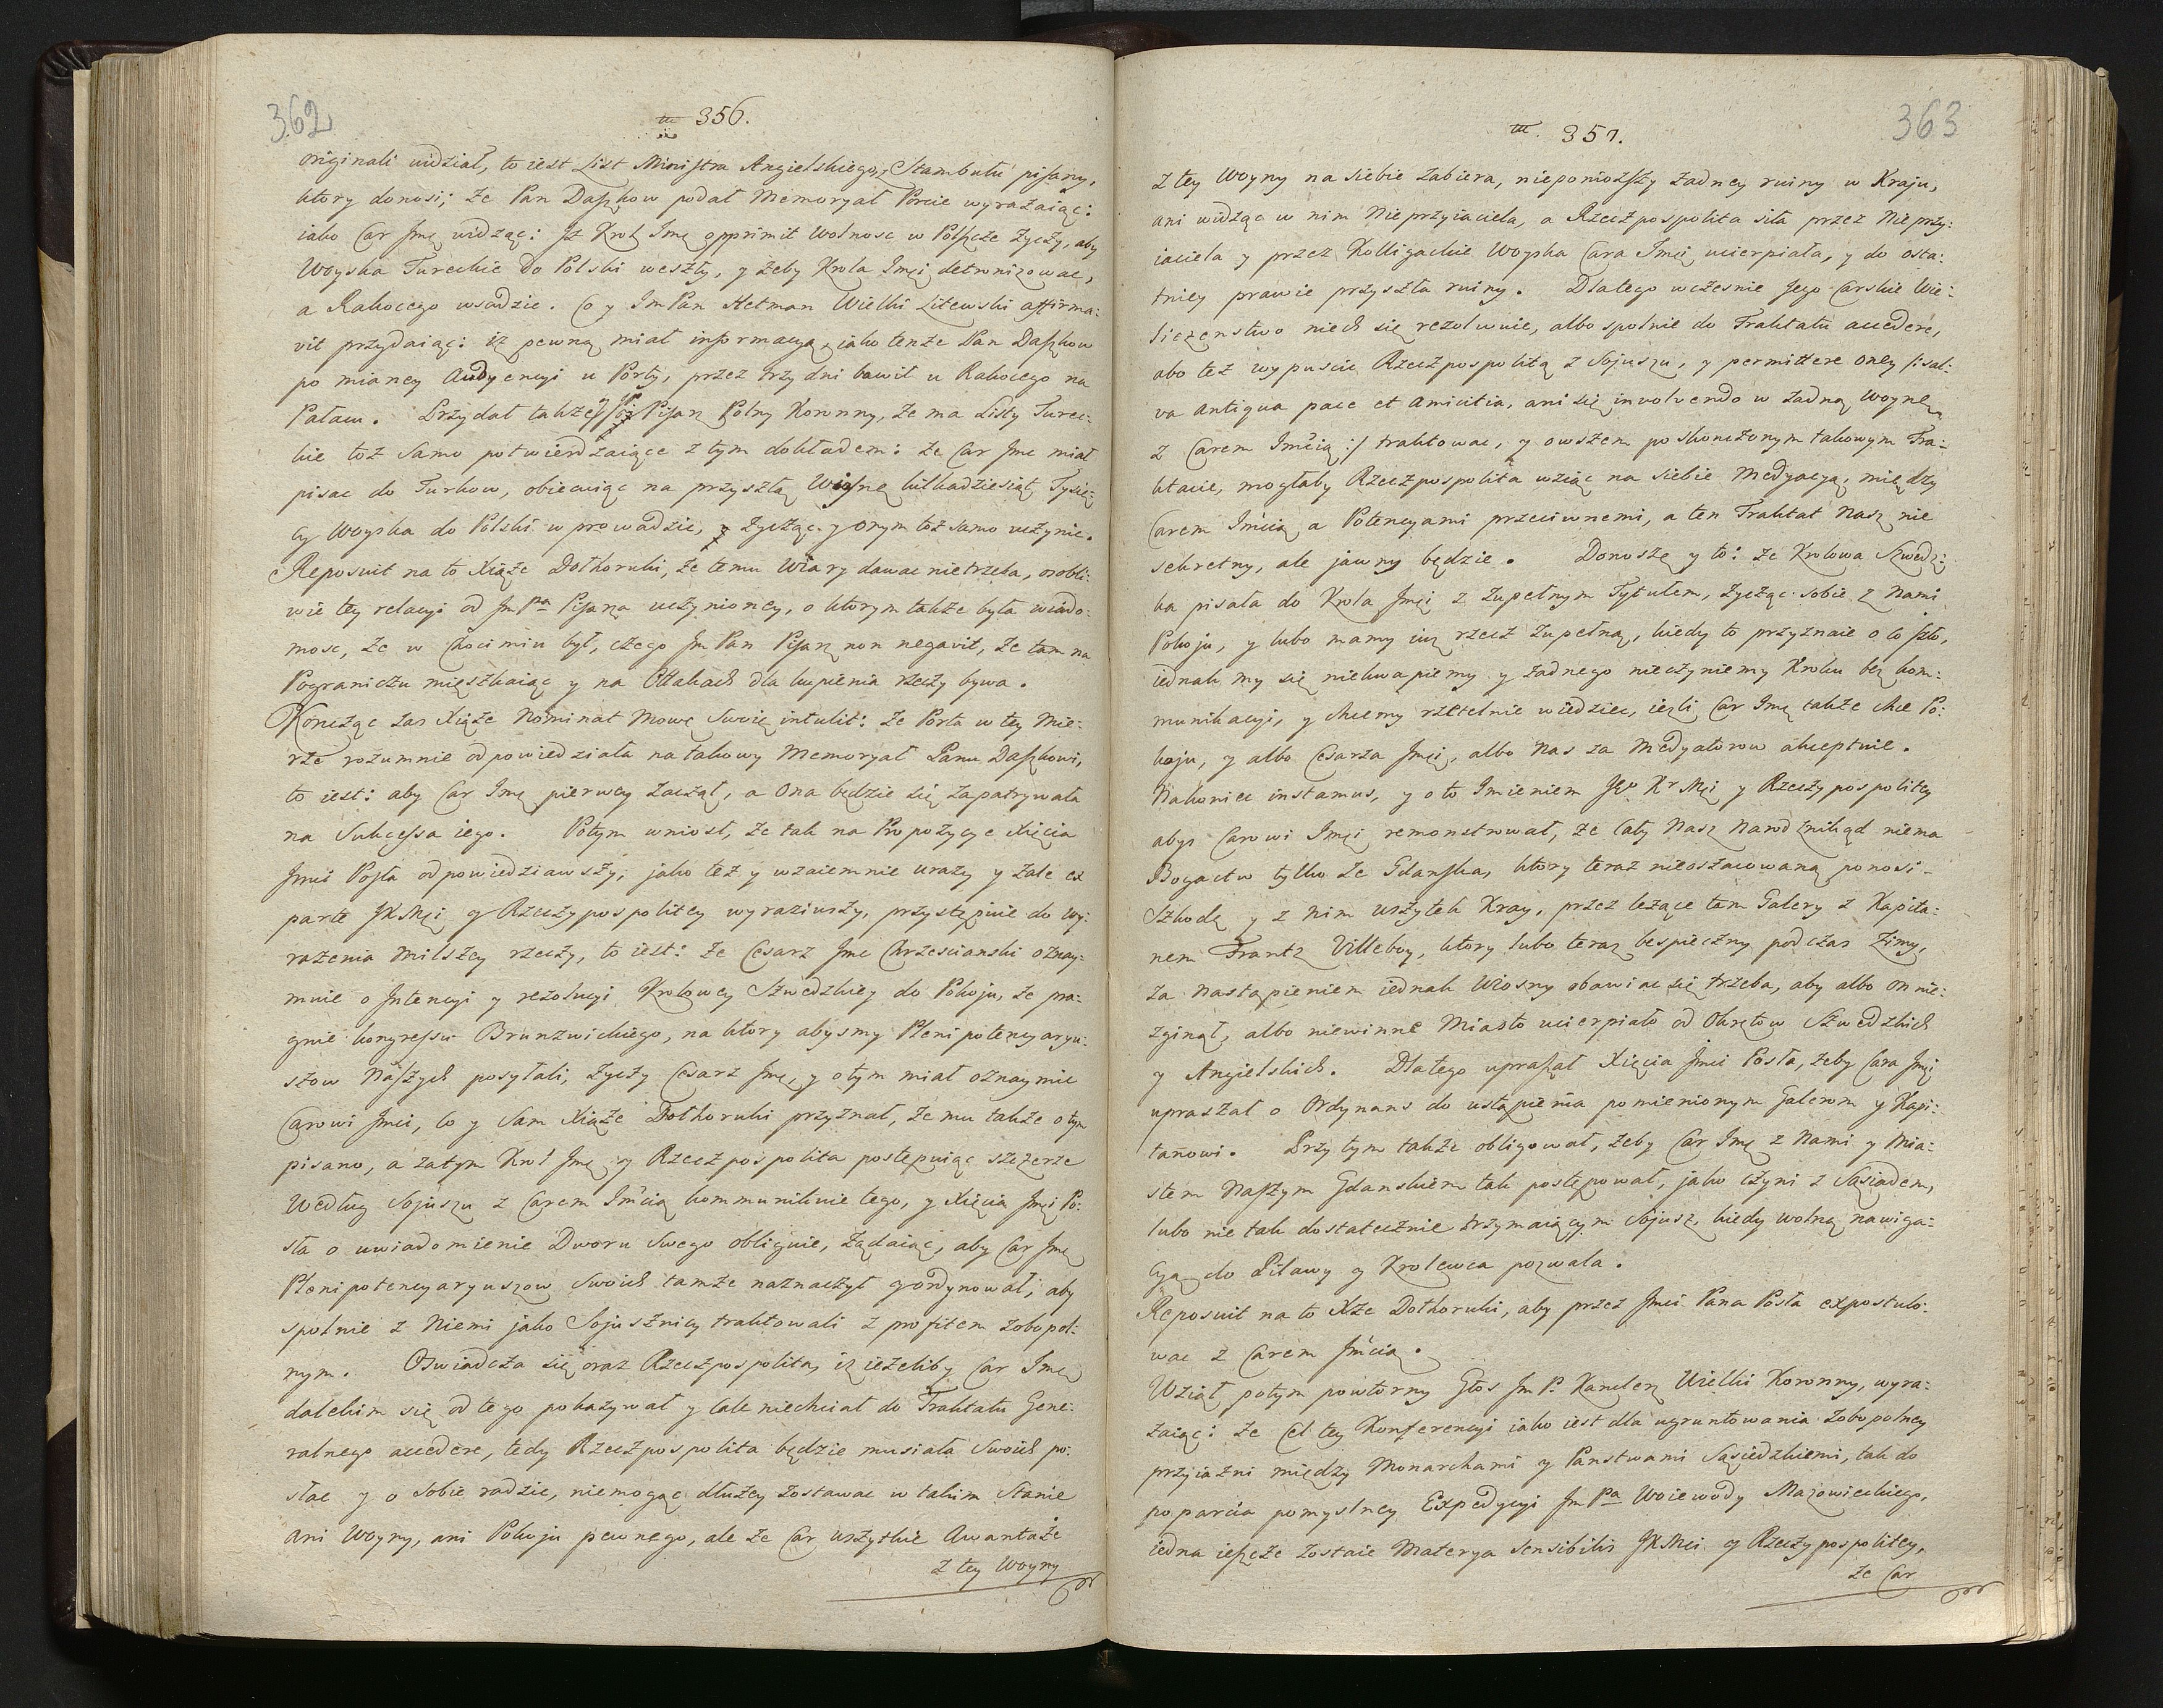 362
356.
originali widział, to iest List Ministra Angielskiego, z Stambułu pisany,
ktory donosi; że Pan Daszkow podał Memoryał Porcie wyrażaiąc:
iako Car Jmć widząc: Jż Krol Jmć opprimit wolnosc w Polszcze życzy, aby
Woyska Tureckie do Polski weszły, y żeby Krola Jmći detronizowac,
a Rakocego wsadzic. Co y Jm Pan Hetman Wielki Litewski affirma:
vit przydaiąc: iż pewną miał informacyą, iako tenże Pan Daszkow
po mianey Audyencyi u Porty, przez trzy dni bawił u Rakocego na
Pałacu. Przydał także Pisarz Polny Koronny, że ma Listy Turec:
kie toż samo potwierdzaiące z tym dokładem: że Car Jmc miał
pisac do Turkow, obiecuiąc na przyszłą Wiosnę kilkadziesiąt Tysię:
cy Woyska do Polski wprowadzic, życząc y onym toż samo uczynic.
Reposuit na to Xiąże Dołhoruki, że temu wiary dawac nietrzeba, osobli:
wie tey relacyi od Jm Pa Pisarza uczynioney, o ktorym także była wiado:
mosc, że w Chocimiu był, czego Jm Pan Pisarz non negavit, że tam na
Pograniczu mięszkaiąc y na Ottakach dla kupienia rzeczy bywa.
Koncząc zas Xiąże Nominat Mowę Swoię intulit: że Porta w tey mie:
rze rozumnie odpowiedziała na takowy Memoryał Panu Daszkowi,
to iest: aby Car Jmć pierwey zaczął, a Ona będzie się zapatrywała
na Sukcessa iego. Potym wniosł, że tak na Propozycye Xięcia
Jmci Posła odpowiedziawszy, jako też y wzaiemnie urazy y żale ex
parte JKMći y Rzeczypospolitey wyraziwszy, przystępuie do wy:
rażenia milszey rzeczy, to iest: że Cesarz Jmc Chrzescianski oznay:
muie o Jntencyi y rezolucyi Krolowey Szwedzkiey do Pokoju, że pra:
gnie kongressu Brunzwickiego, na ktory abysmy Plenipotencyaryu:
szow Naszych posyłali, życzy Cesarz Jmć, y otym miał oznaymic
Carowi Jmci, co y sam Xiąże Dołhoruki przyznał, że mu także o tym
pisano, a zatym Krol Jmć y Rzeczpospolita postępuiąc szczerze
Według Sojuszu z Carem Jmćią kommunikuie tego, y Xięcia Jmći Po:
sła o uwiadomienie Dworu Swego obliguie, żądaiąc, aby Car Jmć
Plenipotencyaryuszow Swoich tamże naznaczył y ordynował; aby
spolnie z Niemi jako Sojusznicy traktowali z profitem zobopol:
nym. Oswiadcza się oraz Rzeczpospolita, iż ieżeliby Car Jmć
dalekim się od tego pokazywał y cale niechciał do Traktatu Gene:
ralnego accedere, tedy Rzeczpospolita będzie musiała Swoich po:
słac y o sobie radzic, niemogąc dłużey zostawac w takim Stanie
ani Woyny, ani Pokoju pewnego, ale że Car wszytkie Awantaże
z tey Woyny
363
357.
z tey Woyny na siebie zabiera, nieponiozszy żadney ruiny w Kraju,
ani widząc w nim Nieprzyiaciela, a Rzeczpospolita siła przez Nieprzy:
iaciela y przez Kolligackie Woyska Cara Jmći ucierpiała, y do osta:
tniey prawie przyszła ruiny. Dlatego wczesnie Jego Carskie Wie:
liczenstwo niech się rezolwuie, albo spolnie do Traktatu accedere,
abo też wypuscic Rzeczpospolitą z Sojuszu, y permittere oney /:sal:
va antiqua pace et amicitia, ani się involvendo w żadną Woynę
z Carem Jmćią:/ traktowac, y owszem po skonczonym takowym Tra:
ktacie, mogłaby Rzeczpospolita wziąc na siebie Medyacyą, między
Carem Jmćią a Potencyami przeciwnemi, a ten Traktat Nasz nie
sekretny, ale jawny będzie. Donoszę y to: że Krolowa Szwedz:
ka pisała do Krola Jmći z zupełnym Tytułem, życząc sobie z Nami
Pokoju, y lubo mamy iuż rzecz zupełną, kiedy to przyznaie o co szło,
iednak my się niekwapiemy y żadnego nieczyniemy Kroku bez kom:
munikacyi, y chcemy rzetelnie wiedziec, ieżli Car Jmć także chce Po:
koju, y albo Cesarza Jmći, albo Nas za Medyatorow akceptuie.
Nakoniec instamus, y o to Jmieniem JGo Kr Mći y Rzeczypospolitey
abys Carowi Jmći remonstrował, że cały Nasz Narod znikąd niema
Bogactw tylko ze Gdanska, ktory teraz nieoszacowaną ponosi
Szkodę y z nim wszytek Kray, przez leżące tam Galery z Kapita:
nem Frantz Villeboy, ktory lubo teraz bespieczny podczas Zimy,
za nastąpieniem iednak Wiosny obawiac się trzeba, aby albo on nie:
zginął, albo niewinne Miasto ucierpiało od Okrętow Szwedzkich
y Angielskich. Dlatego upraszał Xięcia Jmci Posła, żeby Cara Jmći
upraszał o Ordynans do ustąpienia pomienionym Galerom y Kapi:
tanowi. Przytym także obligował, żeby Car Jmć z Nami y Mia:
stem Naszym Gdanskiem tak postępował, jako czyni z Sąsiadem,
lubo nie tak dostatecznie trzymaiącym Sojusz, kiedy wolną nawiga:
cyą do Piławy y Krolewca pozwala.
Reposuit na to Xże Dołhoruki, aby przez Jmci Pana Posła expostulo:
wac z Carem Jmćią.
Wziął potym powtorny Głos Jm P. Kanclerz Wielki Koronny, wyra:
żaiąc: że Cel tey Konferencyi iako iest dla ugruntowania zobopolney
przyiazni między Monarchami y Panstwami Sąsiedzkiemi, tak do
poparcia pomyslney Expedycyi Jm Pa Woiewody Mazowieckiego,
iedna ieszcze zostaie Materya sensibilis JKMci y Rzeczypospolitey,
że Car